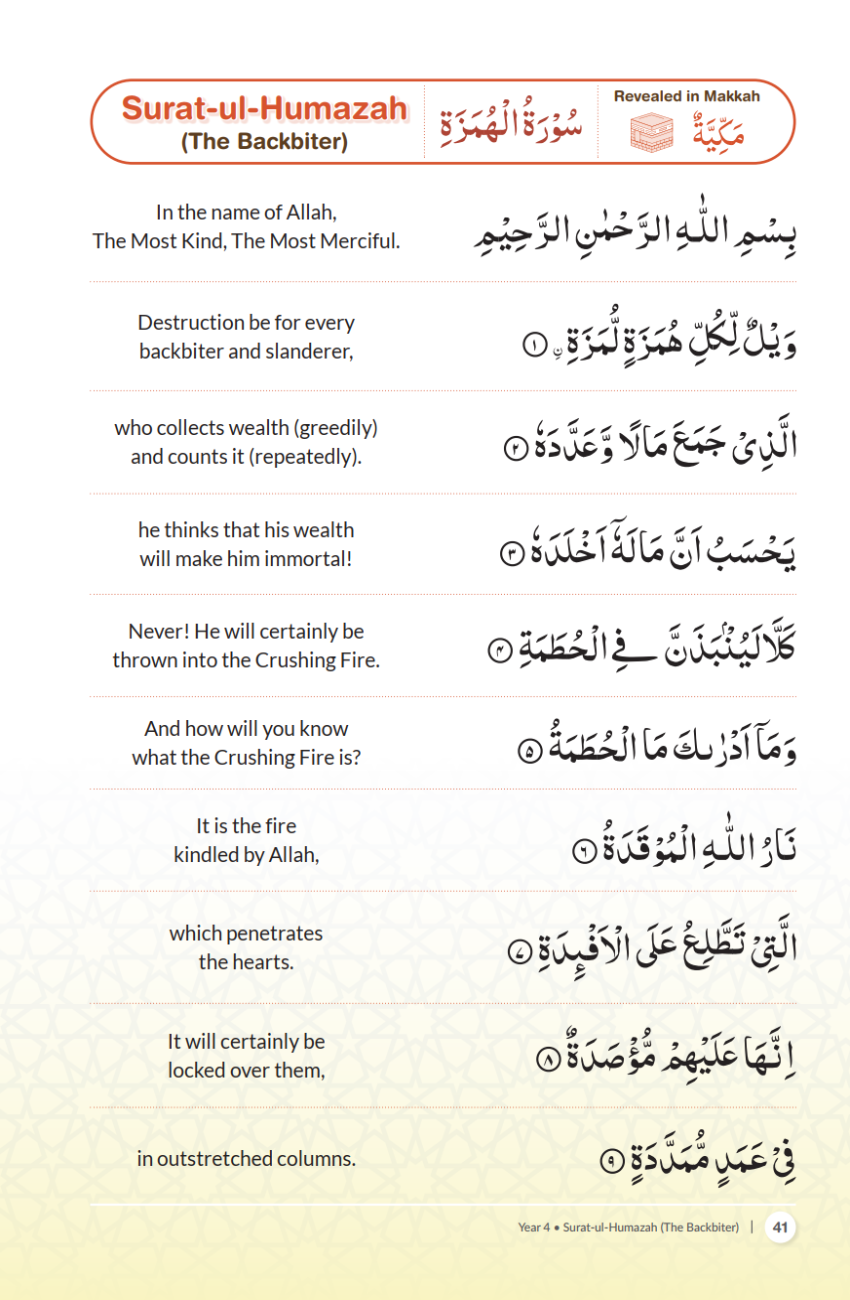 Surat-ul-Humazah
(The Backbiter)
سُوْرَةُ الْهُمَزَةِ
Revealed in Makkah
مَكِّيَّةٌ
In the name of Allah,
The Most Kind, The Most Merciful.
بِسْمِ اللّٰهِ الرَّحْمٰنِ الرَّحِيْمِ
Destruction be for every
backbiter and slanderer,
وَيْلٌ لِّكُلِّ هُمَزَةٍ لُّمَزَةِ ۙ ۝۱
who collects wealth (greedily)
and counts it (repeatedly).
الَّذِىْ جَمَعَ مَالًا وَّعَدَّدَهٗ ۝۲
he thinks that his wealth
will make him immortal!
يَحْسَبُ اَنَّ مَالَهٗۤ اَخْلَدَهٗ ۝۳
Never! He will certainly be
thrown into the Crushing Fire.
كَلَّا لَيُنْۢبَذَنَّ فِى الْحُطَمَةِ ۝۴
And how will you know
what the Crushing Fire is?
وَمَاۤ اَدْرٰىكَ مَا الْحُطَمَةُ ۝۵
It is the fire
kindled by Allah,
نَارُ اللّٰهِ الْمُوْقَدَةُ ۝۶
which penetrates
the hearts.
الَّتِىْ تَطَّلِعُ عَلَى الْاَفْـِٕدَةِ ۝۷
It will certainly be
locked over them,
اِنَّهَا عَلَيْهِمْ مُّؤْصَدَةٌ ۝۸
in outstretched columns.
فِىْ عَمَدٍ مُّمَدَّدَةٍ ۝۹
Year 4 • Surat-ul-Humazah (The Backbiter) | 41